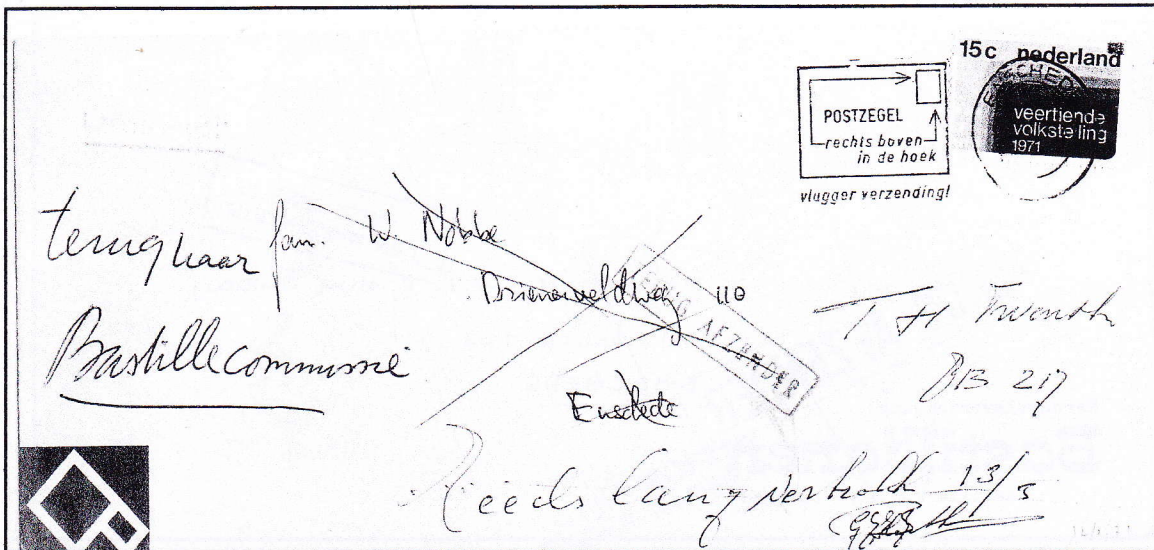 15c nederland
ENSCHEDE
veertiende
volkstelling
1971
POSTZEGEL
rechts boven
in de hoek
vlugger verzending!
terug naar
Bastillecommissie
fam. W. Nobbe
Drienerweldweg 110
Enschede
TERUG AFZENDER
T H Twente
BB 217
Reeds lang vertrokk 13/5